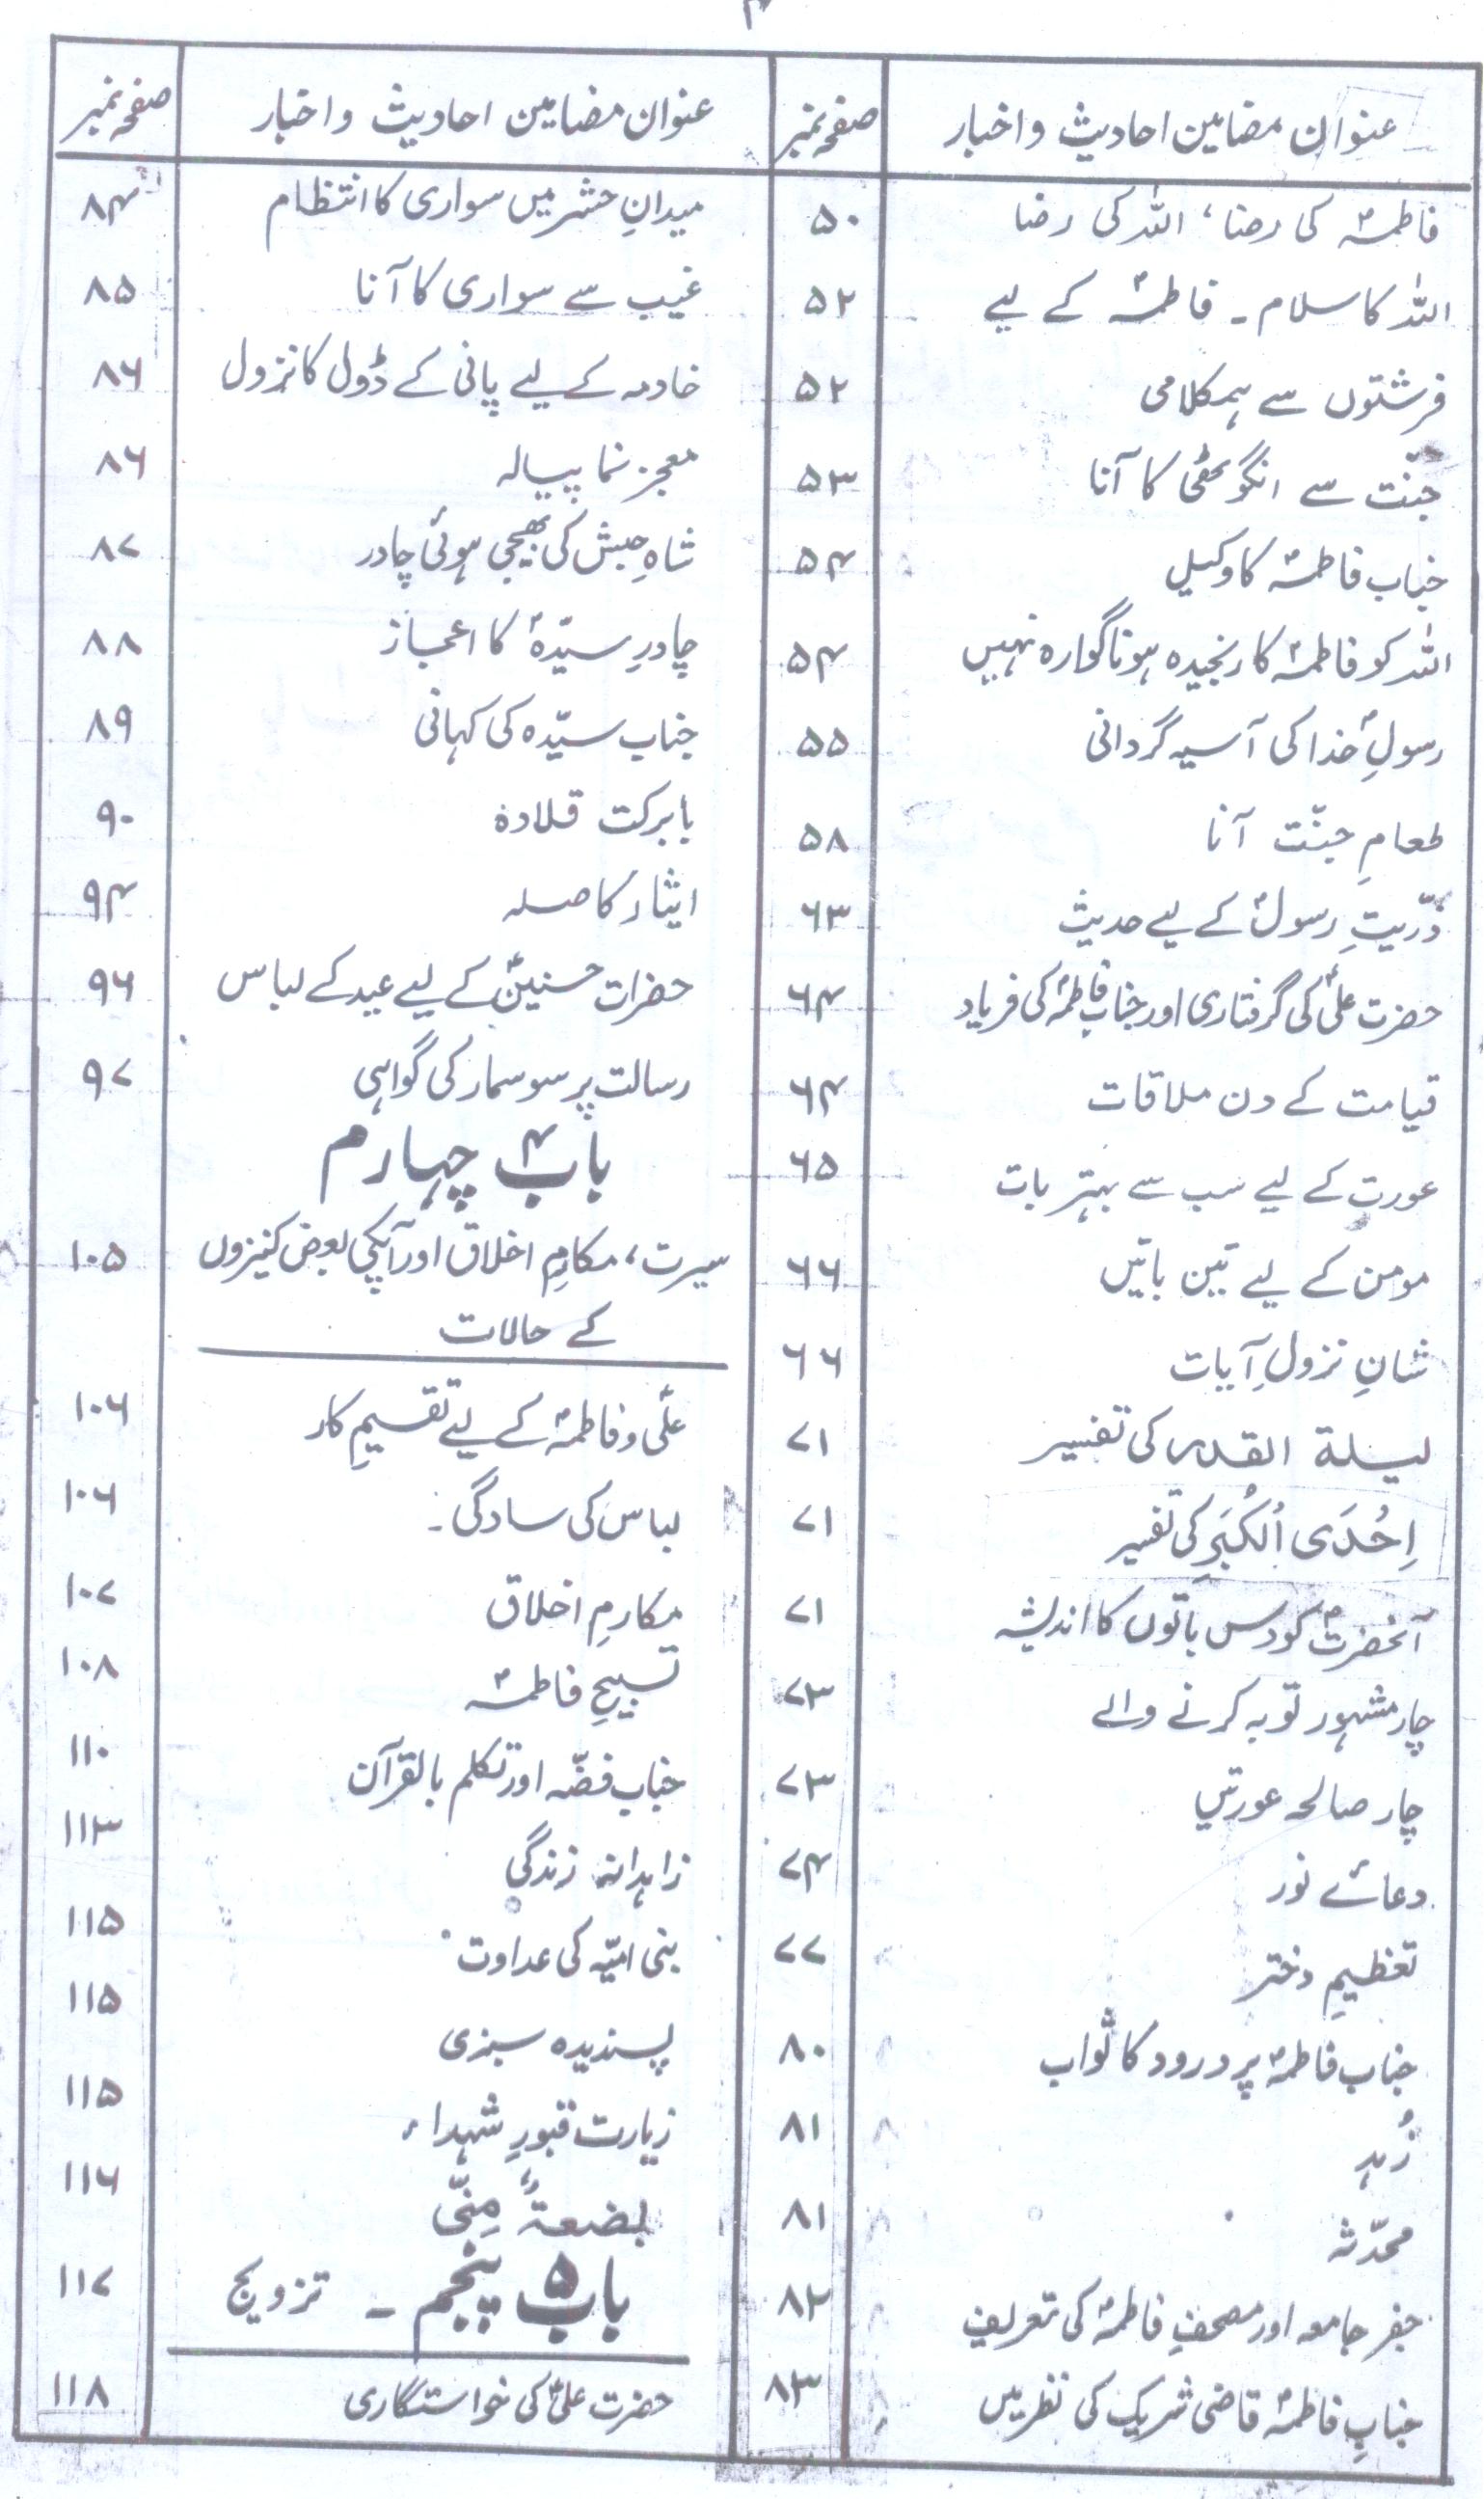 عنوان مضامین احادیث و اخبار صفحہ نمبر
فاطمہؑ کی رضا، اللہ کی رضا ۵۰
اللہ کا سلام ۔ فاطمہؑ کے لیے ۵۲
فرشتوں سے ہمکلامی ۵۲
جنّت سے انگوٹھی کا آنا ۵۳
جناب فاطمہؑ کا وکیل ۵۴
اللہ کو فاطمہؑ کا رنجیدہ ہونا گوارہ نہیں ۵۴
رسولِؐ خدا کی آسیہ گردانی ۵۵
طعامِ جنّت آنا ۵۸
ذرّیتِ رسولؐ کے لیے حدیث ۶۳
حضرت علیؑ کی گرفتاری اور جناب فاطمہؑ کی فریاد ۶۴
قیامت کے دن ملاقات ۶۴
عورت کے لیے سب سے بہتر بات ۶۵
مومن کے لیے تین باتیں ۶۶
شانِ نزولِ آیات ۶۶
لیلۃ القدر کی تفسیر ۷۱
اِحْدَی الْکُبَرِ کی تفسیر ۷۱
آنحضرتؐ کو دس باتوں کا اندیشہ ۷۱
چار مشہور توبہ کرنے والے ۷۳
چار صالحہ عورتیں ۷۳
دعائے نور ۷۴
تعظیمِ دختر ۷۷
جناب فاطمہؑ پر درود کا ثواب ۸۰
زُہد ۸۱
محدّثہ ۸۱
جفر جامعہ اور مصحفِ فاطمہؑ کی تعریف ۸۲
جنابِ فاطمہؑ قاضی شریک کی نظر میں ۸۳
عنوان مضامین احادیث و اخبار صفحہ نمبر
میدانِ حشر میں سواری کا انتظام ۸۴
غیب سے سواری کا آنا ۸۵
خادمہ کے لیے پانی کے ڈول کا نزول ۸۶
معجز نما پیالہ ۸۶
شاہِ حبش کی بھیجی ہوئی چادر ۸۷
چادرِ سیّدہؑ کا اعجاز ۸۸
جناب سیّدہ کی کہانی ۸۹
بابرکت قلادہ ۹۰
ایثار کا صلہ ۹۴
حضرات حسنینؑ کے لیے عید کے لباس ۹۶
رسالت پر سوسمار کی گواہی ۹۷
باب ۴ چہارم
سیرت، مکارمِ اخلاق اور آپکی بعض کنیزوں ۱۰۵
کے حالات
علیؑ و فاطمہؑ کے لیے تقسیمِ کار ۱۰۶
لباس کی سادگی ۔ ۱۰۶
مکارمِ اخلاق ۱۰۷
تسبیحِ فاطمہؑ ۱۰۸
جناب فضّہ اور تکلم بالقرآن ۱۱۰
زاہدانہ زندگی ۱۱۳
بنی امیّہ کی عداوت ۱۱۵
پسندیدہ سبزی ۱۱۵
زیارت قبورِ شہداء ۱۱۵
بضعۃٌ مِنّی ۱۱۶
باب ۵ پنجم ۔ تزویج ۱۱۷
حضرت علیؑ کی خواستگاری ۱۱۸